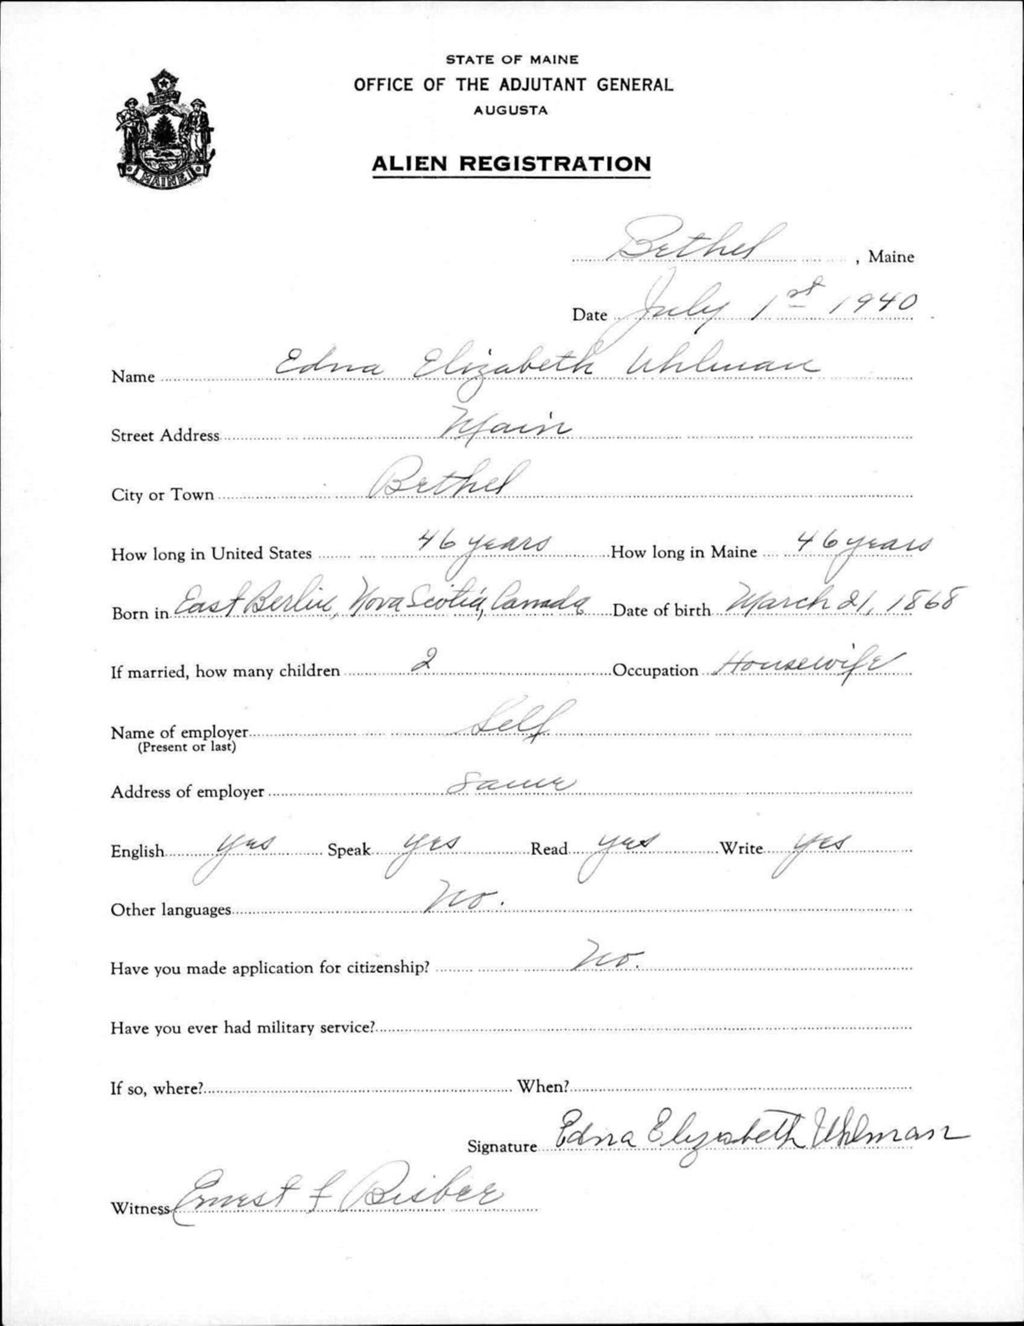 STATE OF MAINE
OFFICE OF THE ADJUTANT GENERAL
AUGUSTA
ALIEN REGISTRATION
MAINE
Bethel, Maine
Date July 1st 1940
Name Edna Elizabeth Uhlman
Street Address Main
City or Town Bethel
How long in United States 46 years How long in Maine 46 years
Born in East Berlin, Nova Scotia, Canada Date of birth March 21, 1868
If married, how many children 2 Occupation Housewife
Name of employer Self
(Present or last)
Address of employer Same
English yes Speak yes Read yes Write yes
Other languages No.
Have you made application for citizenship? No.
Have you ever had military service?
If so, where? When?
Signature Edna Elizabeth Uhlman
Witness Ernest F Bisbee